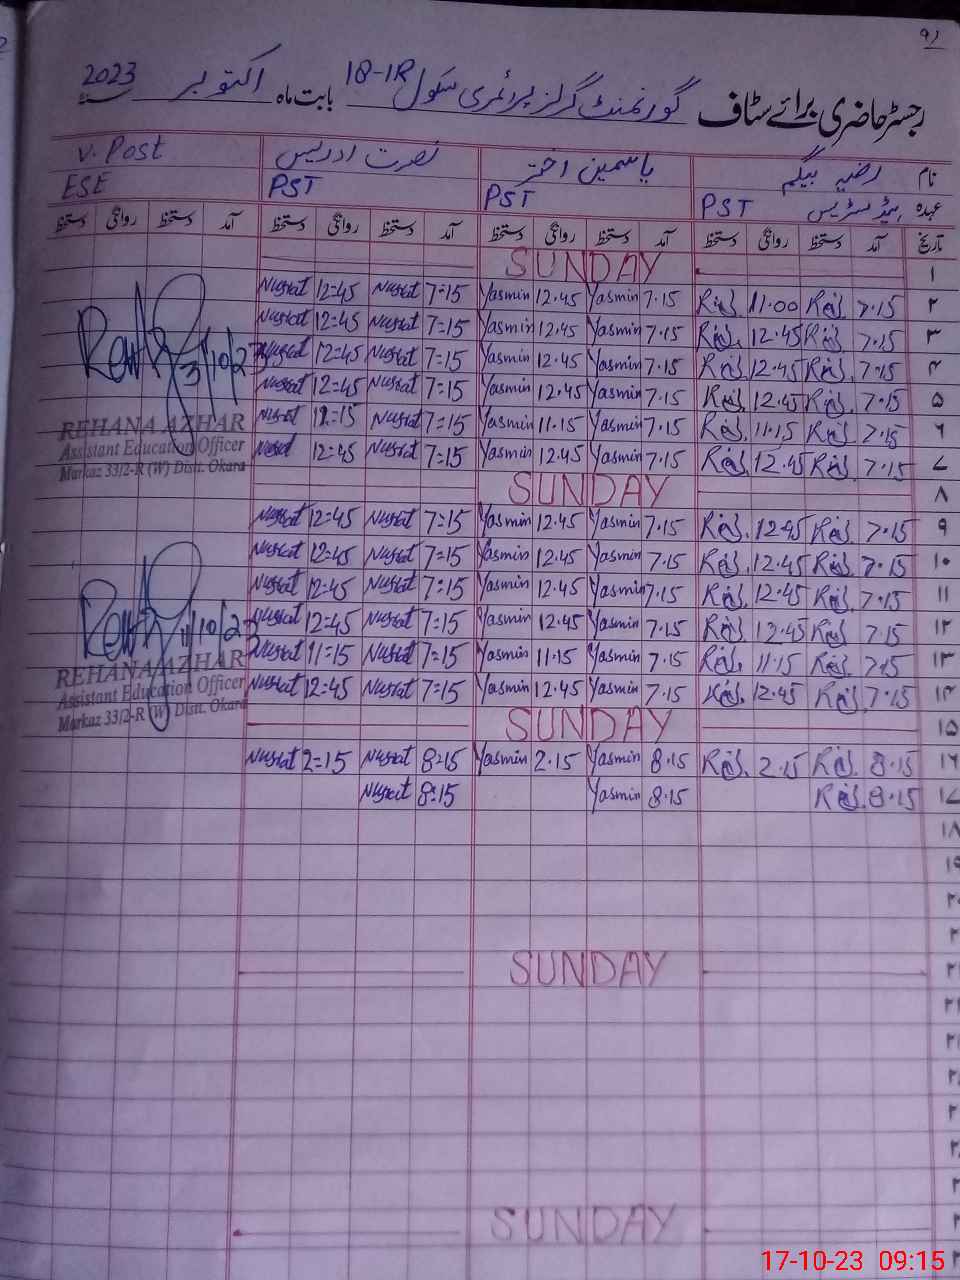 91
رجسٹر حاضری برائے سٹاف گورنمنٹ گرلز پرائمری سکول 18-1R بابت ماہ اکتوبر 2023
نام رضیہ بیگم یاسمین اختر نصرت ادریس V. Post
عہدہ ہیڈ مسٹریس PST PST PST ESE
تاریخ آمد دستخط روانگی دستخط آمد دستخط روانگی دستخط آمد دستخط روانگی دستخط آمد دستخط روانگی دستخط
۱ SUNDAY
۲ 7.15 11.00 7.15 Yasmin 12.45 Yasmin 7=15 Nusrat 12=45 Nusrat
۳ 7.15 12.45 7.15 Yasmin 12.45 Yasmin 7=15 Nusrat 12=45 Nusrat
۴ 7.15 12.45 7.15 Yasmin 12.45 Yasmin 7=15 Nusrat 12=45 Nusrat
3/10/23
۵ 7.15 12.45 7.15 Yasmin 12.45 Yasmin 7=15 Nusrat 12=45 Nusrat
۶ 7.15 11.15 7.15 Yasmin 11.15 Yasmin 7=15 Nusrat 11=15 Nusrat
۷ 7.15 12.45 7.15 Yasmin 12.45 Yasmin 7=15 Nusrat 12=45 Nusrat
REHANA AZHAR
Assistant Education Officer
Markaz 33/2-R (W) Distt. Okara
۸ SUNDAY
۹ 7.15 12.45 7.15 Yasmin 12.45 Yasmin 7=15 Nusrat 12=45 Nusrat
۱۰ 7.15 12.45 7.15 Yasmin 12.45 Yasmin 7=15 Nusrat 12=45 Nusrat
۱۱ 7.15 12.45 7.15 Yasmin 12.45 Yasmin 7=15 Nusrat 12=45 Nusrat
۱۲ 7.15 12.45 7.15 Yasmin 12.45 Yasmin 7=15 Nusrat 12=45 Nusrat
11/10/23
۱۳ 7.15 11.15 7.15 Yasmin 11.15 Yasmin 7=15 Nusrat 11=15 Nusrat
۱۴ 7.15 12.45 7.15 Yasmin 12.45 Yasmin 7=15 Nusrat 12=45 Nusrat
REHANA AZHAR
Assistant Education Officer
Markaz 33/2-R (W) Distt. Okara
۱۵ SUNDAY
۱۶ 8.15 2.15 8.15 Yasmin 2.15 Yasmin 8=15 Nusrat 2=15 Nusrat
۱۷ 8.15 8.15 Yasmin 8=15 Nusrat
۱۸
SUNDAY
SUNDAY
17-10-23 09:15